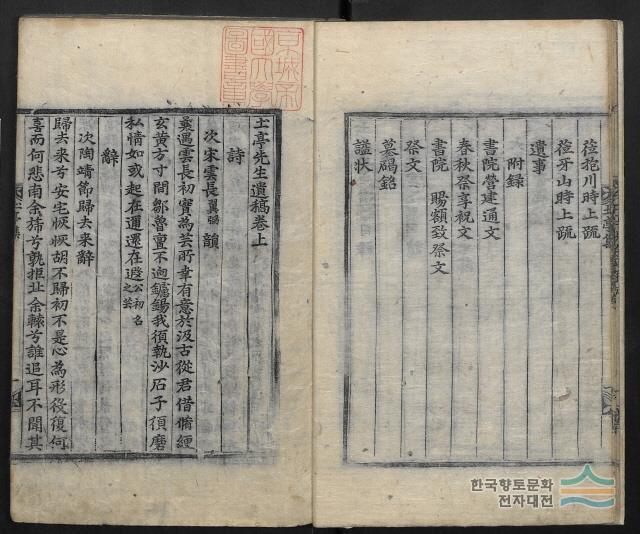 莅抱川時上疏
莅牙山時上疏
遺事
附録
書院營建通文
春秋祭享祝文
書院 賜額致祭文
祭文
墓碣銘
諡状
京城帝
國大學
圖書章
土亭先生遺稿卷上
詩
次宋雲長翼弼韻
蚤遇雲長初實為芸所幸有意於汲古從君借脩綆
玄黄方寸間鄒魯亶不逈鑢鍚我須執沙石子須磨
私情如或起在邇還在逈公初名之芸
辭
次陶靖節歸去来辭
歸去来兮安宅恢恢胡不歸初不是心為形役復何
喜而何悲南余旆兮孰拒北余轅兮誰追耳不聞其
한국향토문화
전자대전